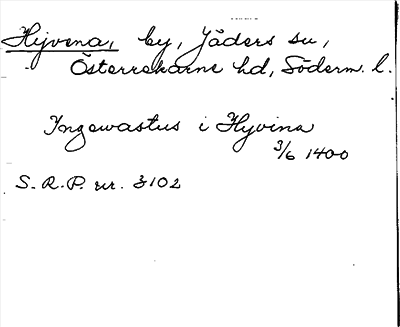 Hyvena, by, Jäders sn,
Österrekarne hd, Söderm. l.
Yngewastus i Hyvina
3/6 1400
S. R. P. nr. 3102